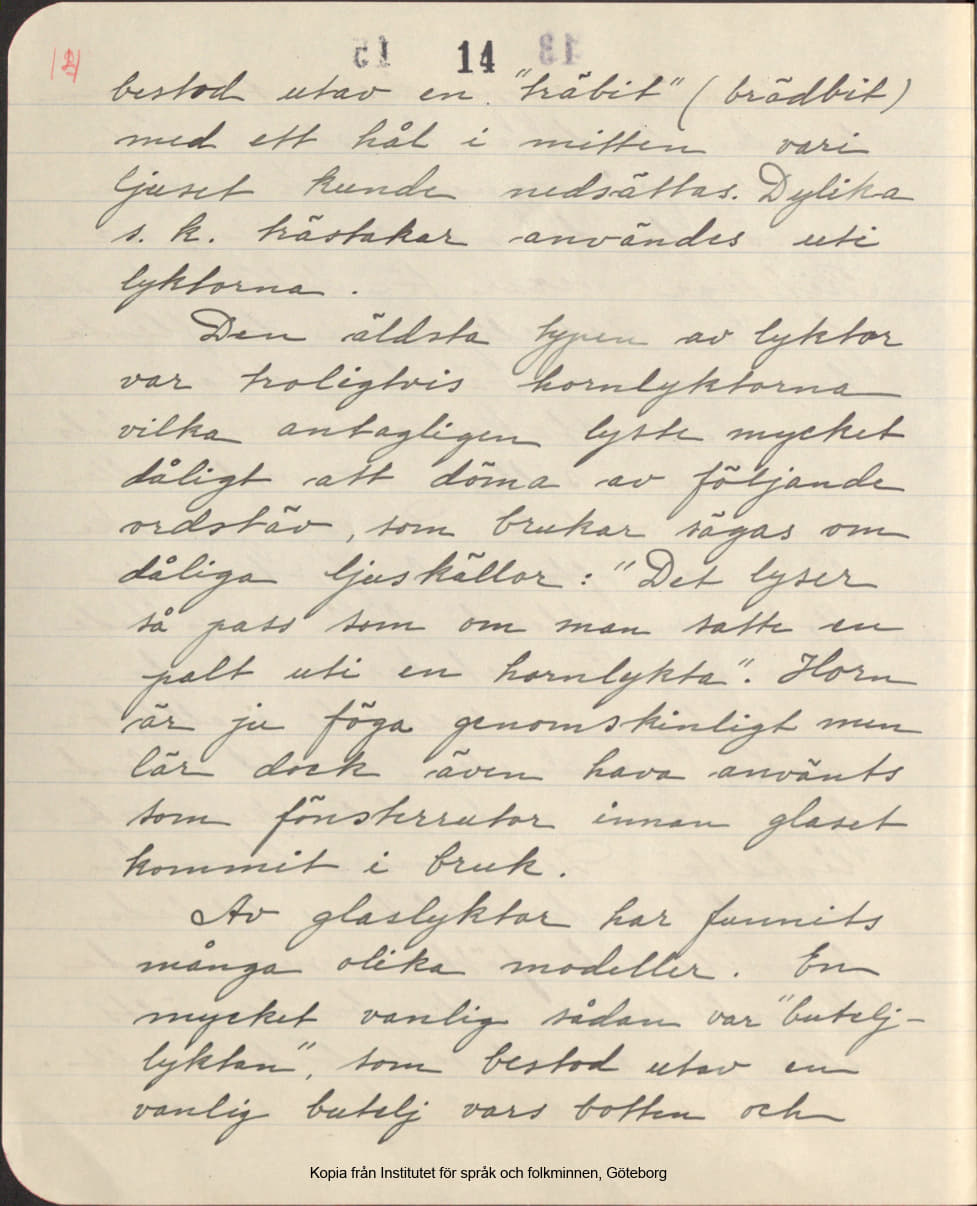 14
bestod utav en "träbit" (brädbit)
med ett hål i mitten vari
ljuset kunde nedsättas. Dylika
s. k. trästakar användes uti
lyktorna.
Den äldsta typen av lyktor
var troligtvis hornlyktorna
vilka antagligen lyste mycket
dåligt att döma av följande
ordstäv, som brukar sägas om
dåliga ljuskällor: "Det lyser
så pass som om man satte en
palt uti en hornlykta". Horn
är ju föga genomskinligt men
lär dock även hava använts
som fönsterrutor innan glaset
kommit i bruk.
Av glaslyktor har funnits
många olika modeller. En
mycket vanlig sådan var "butelj-
lyktan", som bestod utav en
vanlig butelj vars botten och
Kopia från Institutet för språk och folkminnen, Göteborg